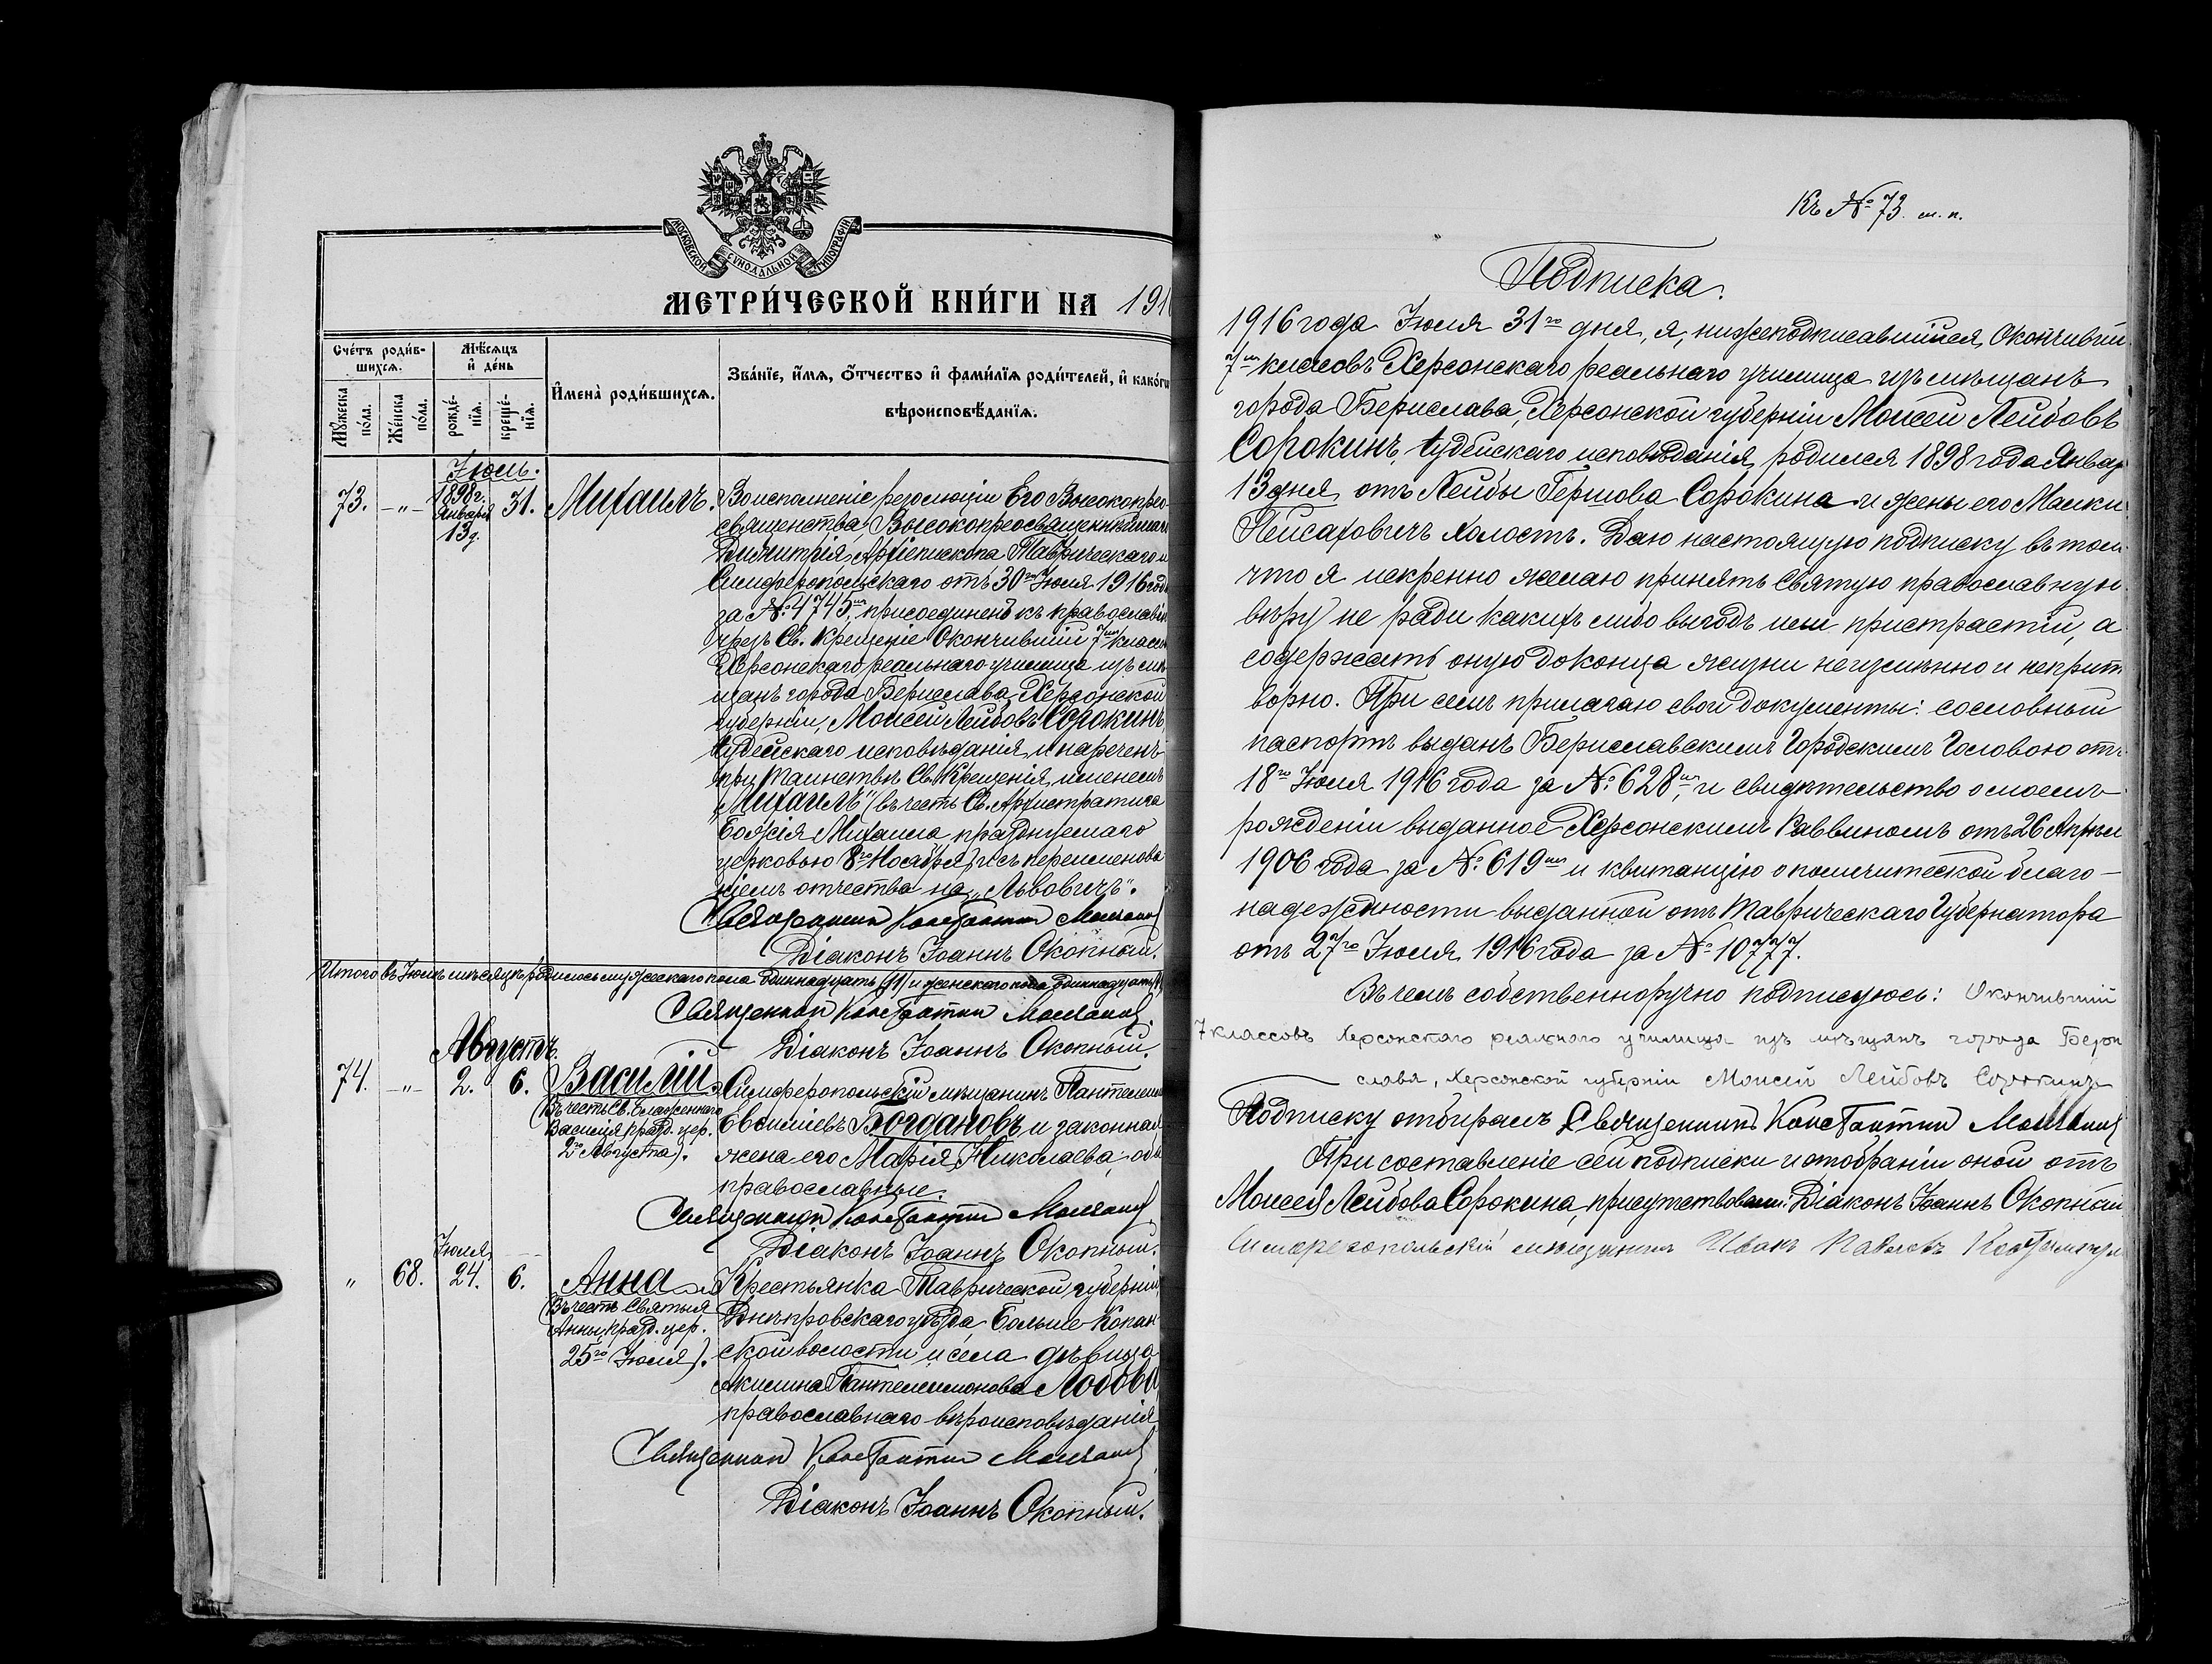 МОСКОВСКОЙ СѴНОДАЛЬНОЙ ТИПОГРАФІИ
МЕТРИ́ЧЕСКОЙ КНИ́ГИ НА 191
Сче́тъ роди́в-
шихсѧ.
Мѣ́сѧцъ
и҆ де́нь
И҆мена̀ роди́вшихсѧ.
Зва́нїе, и҆́мѧ, ѻ҆́тчество и҆ фами́лїѧ роди́телей, и҆ како́гѡ
вѣроисповѣ́данїѧ.
Мꙋ́жеска по́ла.
Же́нска по́ла.
рожде́-нїѧ.
креще́-нїѧ.
Іюль.
73. -„- 1898 г. Января 13 д. 31. Михаилъ. Во исполненіе резолюціи Его Высокопрео-
священства, Высокопреосвященнѣйшаго
Димитрія, Архіепископа Таврическаго и
Симферопольскаго отъ 30го Іюля 1916 года
за № 4745мъ, присоединенъ къ православію
чрезъ Св. Крещеніе Окончившій 7мь классовъ
Херсонскаго реальнаго училища изъ мѣ-
щанъ города Берислава, Херсонской
губерніи, Моисей Лейбовъ Сорокинъ,
іудейскаго исповѣданія, и нареченъ
при Таинствѣ Св. Крещенія, именемъ
„Михаилъ" (въ честь Св. Архистратига
Божія Михаила празднуемаго
церковью 8го Ноября) и съ переименова
ніемъ отчества на „Львовичъ".
Священникъ Константинъ
Діаконъ Іоаннъ Окопный.
Итого въ Іюлѣ мѣсяцѣ родилось мужескаго пола одиннадцать (11) и женскаго пола одиннадцать
Священникъ Константинъ
Діаконъ Іоаннъ Окопный.
Августъ.
74. -„- 2. 6. Василій. Симферопольскій мѣщанинъ Пантелеим
(Въ честь Св. блаженнаго Евсиміевъ Богдановъ и законная
Василія, празд. цер. жена его Марія Николаева, оба
2го Августа). православные.
Священникъ Константинъ
Діаконъ Іоаннъ Окопный.
Іюля
„ 68. 24. 6. Анна Крестьянка Таврической губерніи,
(Въ честь Святыя Днѣпровскаго уѣзда, Больше-Копан
Анны, празд. цер. ской волости и села дѣвица
25го Іюля). Акилина Пантелеимонова Лобова
православнаго вѣроисповѣданія
Священникъ Константинъ
Діаконъ Іоаннъ Окопный.
Къ № 73. м. п.
Подписка.
1916 года Іюля 31го дня, я, нижеподписавшійся, Окончившій
7мь классовъ Херсонскаго реальнаго училища изъ мѣщанъ
города Берислава, Херсонской губерніи Моисей Лейбовъ
Сорокинъ, іудейскаго исповѣданія, родился 1898 года Январ
13 дня, отъ Лейбы Гершова Сорокина и жены его Малки
Пейсаховичъ холостъ. Даю настоящую подписку въ том
что я искренно желаю принять святую православную
вѣру не ради какихъ либо выгодъ или пристрастій, а
содержать оную до конца жизни неизмѣнно и неприт
ворно. При семъ прилагаю свои документы: сословный
паспортъ выданъ Бериславскимъ Городскимъ Головою отъ
18го Іюля 1916 года за № 628мъ, и свидѣтельство о моемъ
рожденіи выданное Херсонскимъ Раввиномъ отъ 26 Апрѣля
1906 года за № 619мъ и квитанцію о политической благо-
надежности выданной отъ Таврическаго Губернатора
отъ 27го Іюля 1916 года за № 10777.
Въ чемъ собственноручно подписуюсь: Окончившій
7 классовъ Херсонскаго реальнаго училища изъ мѣщанъ города Бери
слава, Херсонской губерніи Моисей Лейбовъ Сорокинъ
Подписку отбиралъ Священникъ Константинъ
При составленіе сей подписки и отобраніи оной отъ
Моисея Лейбова Сорокина, присутствовали: Діаконъ Іоаннъ Окопный
Симферопольскій мѣщанинъ Иванъ Павловъ